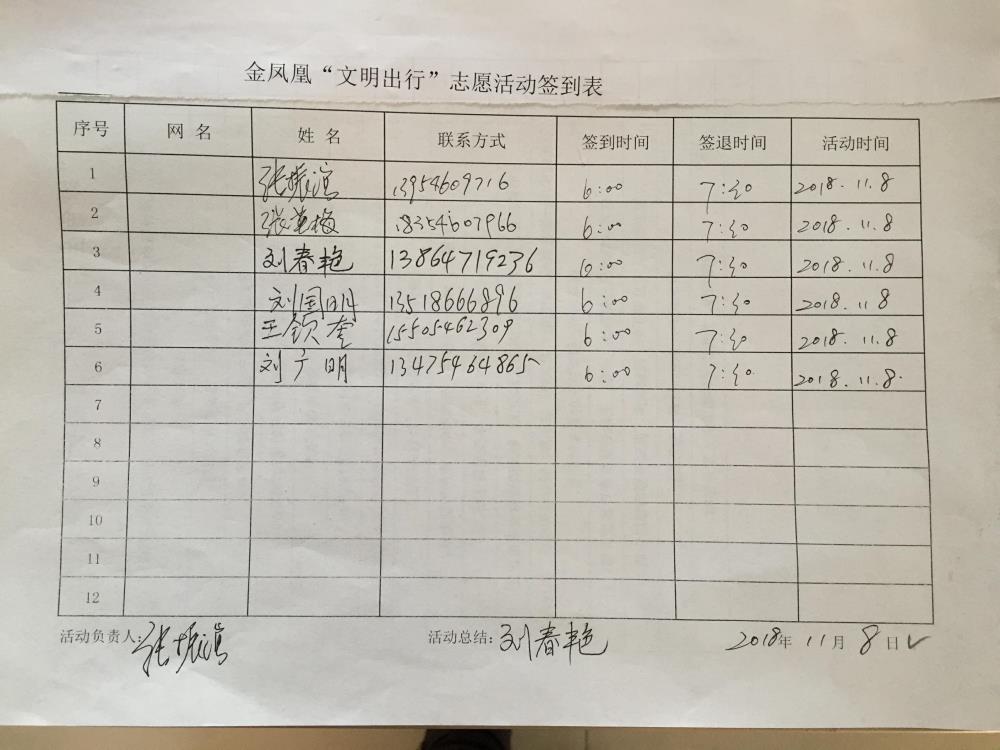 金凤凰“文明出行”志愿活动签到表
序号 网名 姓名 联系方式 签到时间 签退时间 活动时间
1 张振滨 13954609716 6:00 7:30 2018.11.8
2 张英梅 18354607966 6:00 7:30 2018.11.8
3 刘春艳 13864719236 6:00 7:30 2018.11.8
4 刘国明 13518666896 6:00 7:30 2018.11.8
5 王钦奎 15505462309 6:00 7:30 2018.11.8
6 刘广明 13475464865 6:00 7:30 2018.11.8.
7
8
9
10
11
12
活动负责人:张振滨 活动总结:刘春艳 2018年11月8日